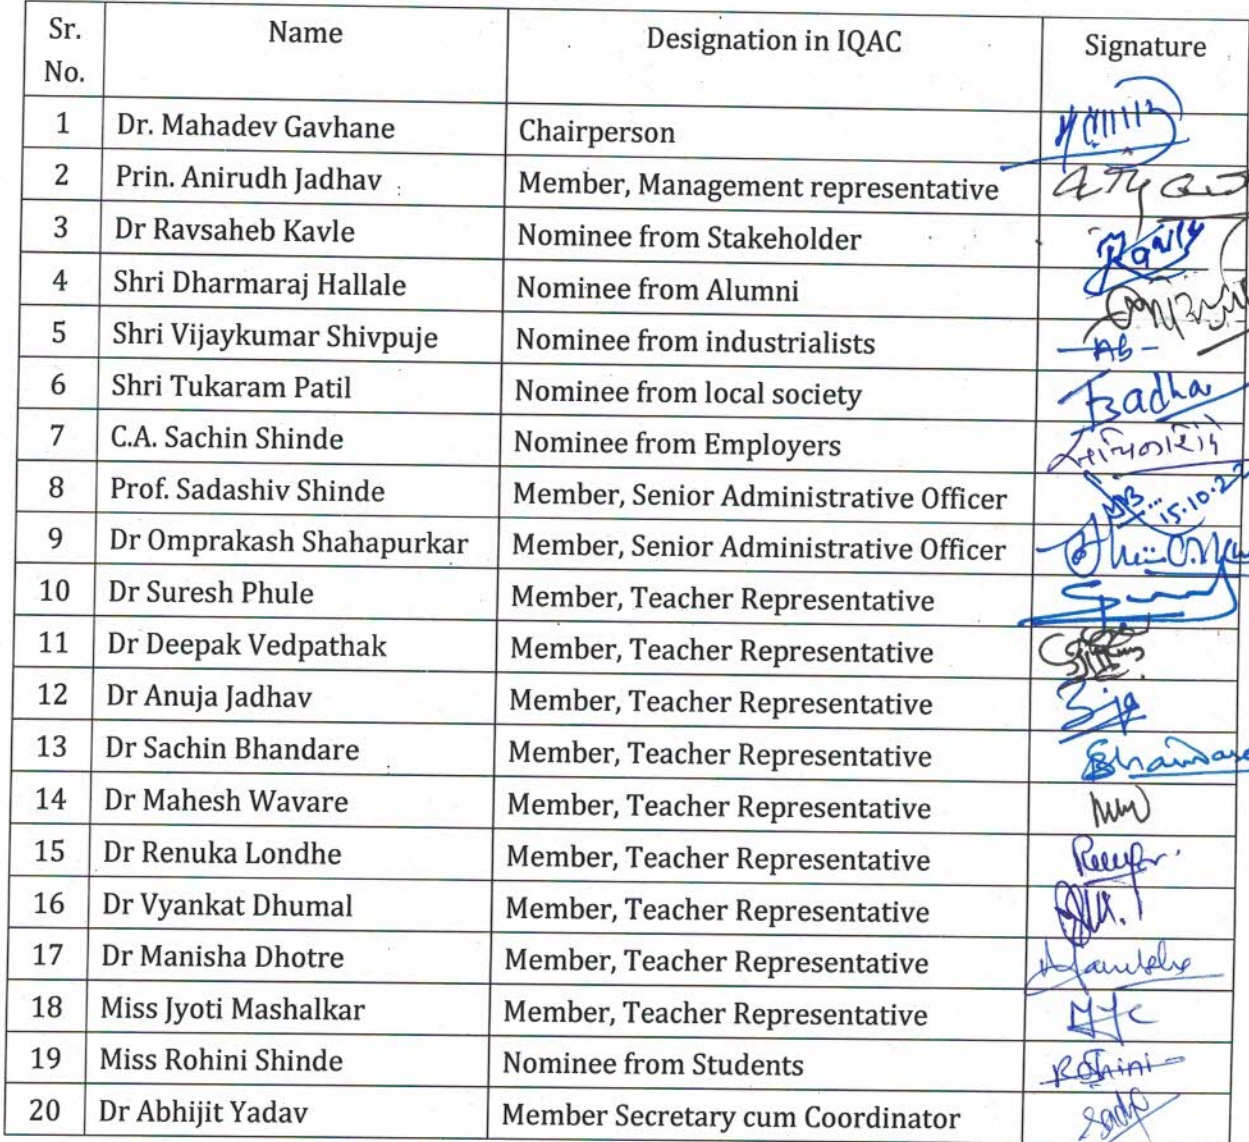 Sr. No. Name Designation in IQAC Signature
1 Dr. Mahadev Gavhane Chairperson
2 Prin. Anirudh Jadhav Member, Management representative
3 Dr Ravsaheb Kavle Nominee from Stakeholder
4 Shri Dharmaraj Hallale Nominee from Alumni
5 Shri Vijaykumar Shivpuje Nominee from industrialists -AB-
6 Shri Tukaram Patil Nominee from local society
7 C.A. Sachin Shinde Nominee from Employers
8 Prof. Sadashiv Shinde Member, Senior Administrative Officer
9 Dr Omprakash Shahapurkar Member, Senior Administrative Officer
10 Dr Suresh Phule Member, Teacher Representative
11 Dr Deepak Vedpathak Member, Teacher Representative
12 Dr Anuja Jadhav Member, Teacher Representative
13 Dr Sachin Bhandare Member, Teacher Representative
14 Dr Mahesh Wavare Member, Teacher Representative
15 Dr Renuka Londhe Member, Teacher Representative
16 Dr Vyankat Dhumal Member, Teacher Representative
17 Dr Manisha Dhotre Member, Teacher Representative
18 Miss Jyoti Mashalkar Member, Teacher Representative
19 Miss Rohini Shinde Nominee from Students Rohini
20 Dr Abhijit Yadav Member Secretary cum Coordinator